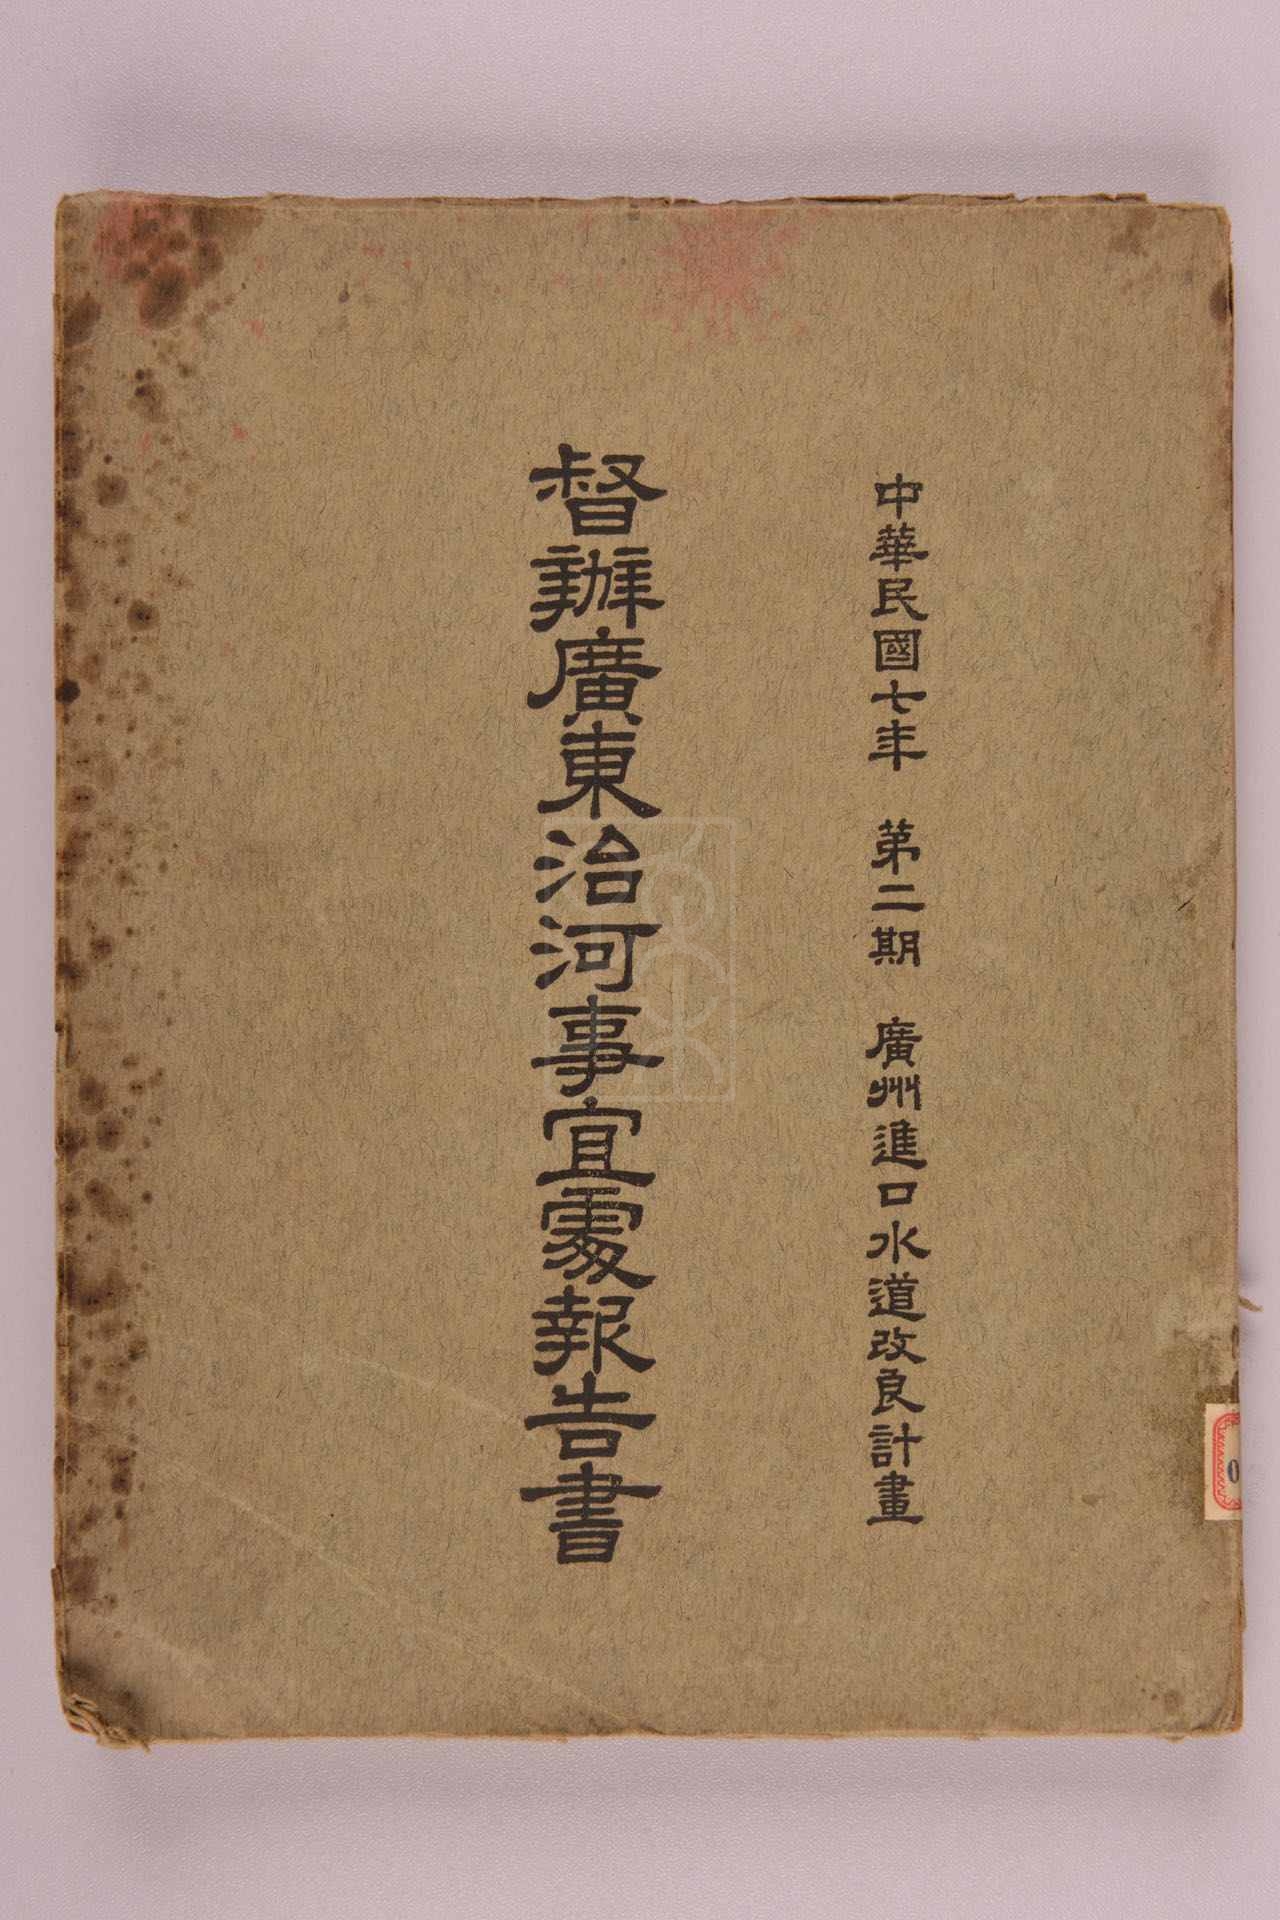 中華民國七年　第二期　廣州進口水道改良計畫
督辦廣東治河事宜處報告書
0